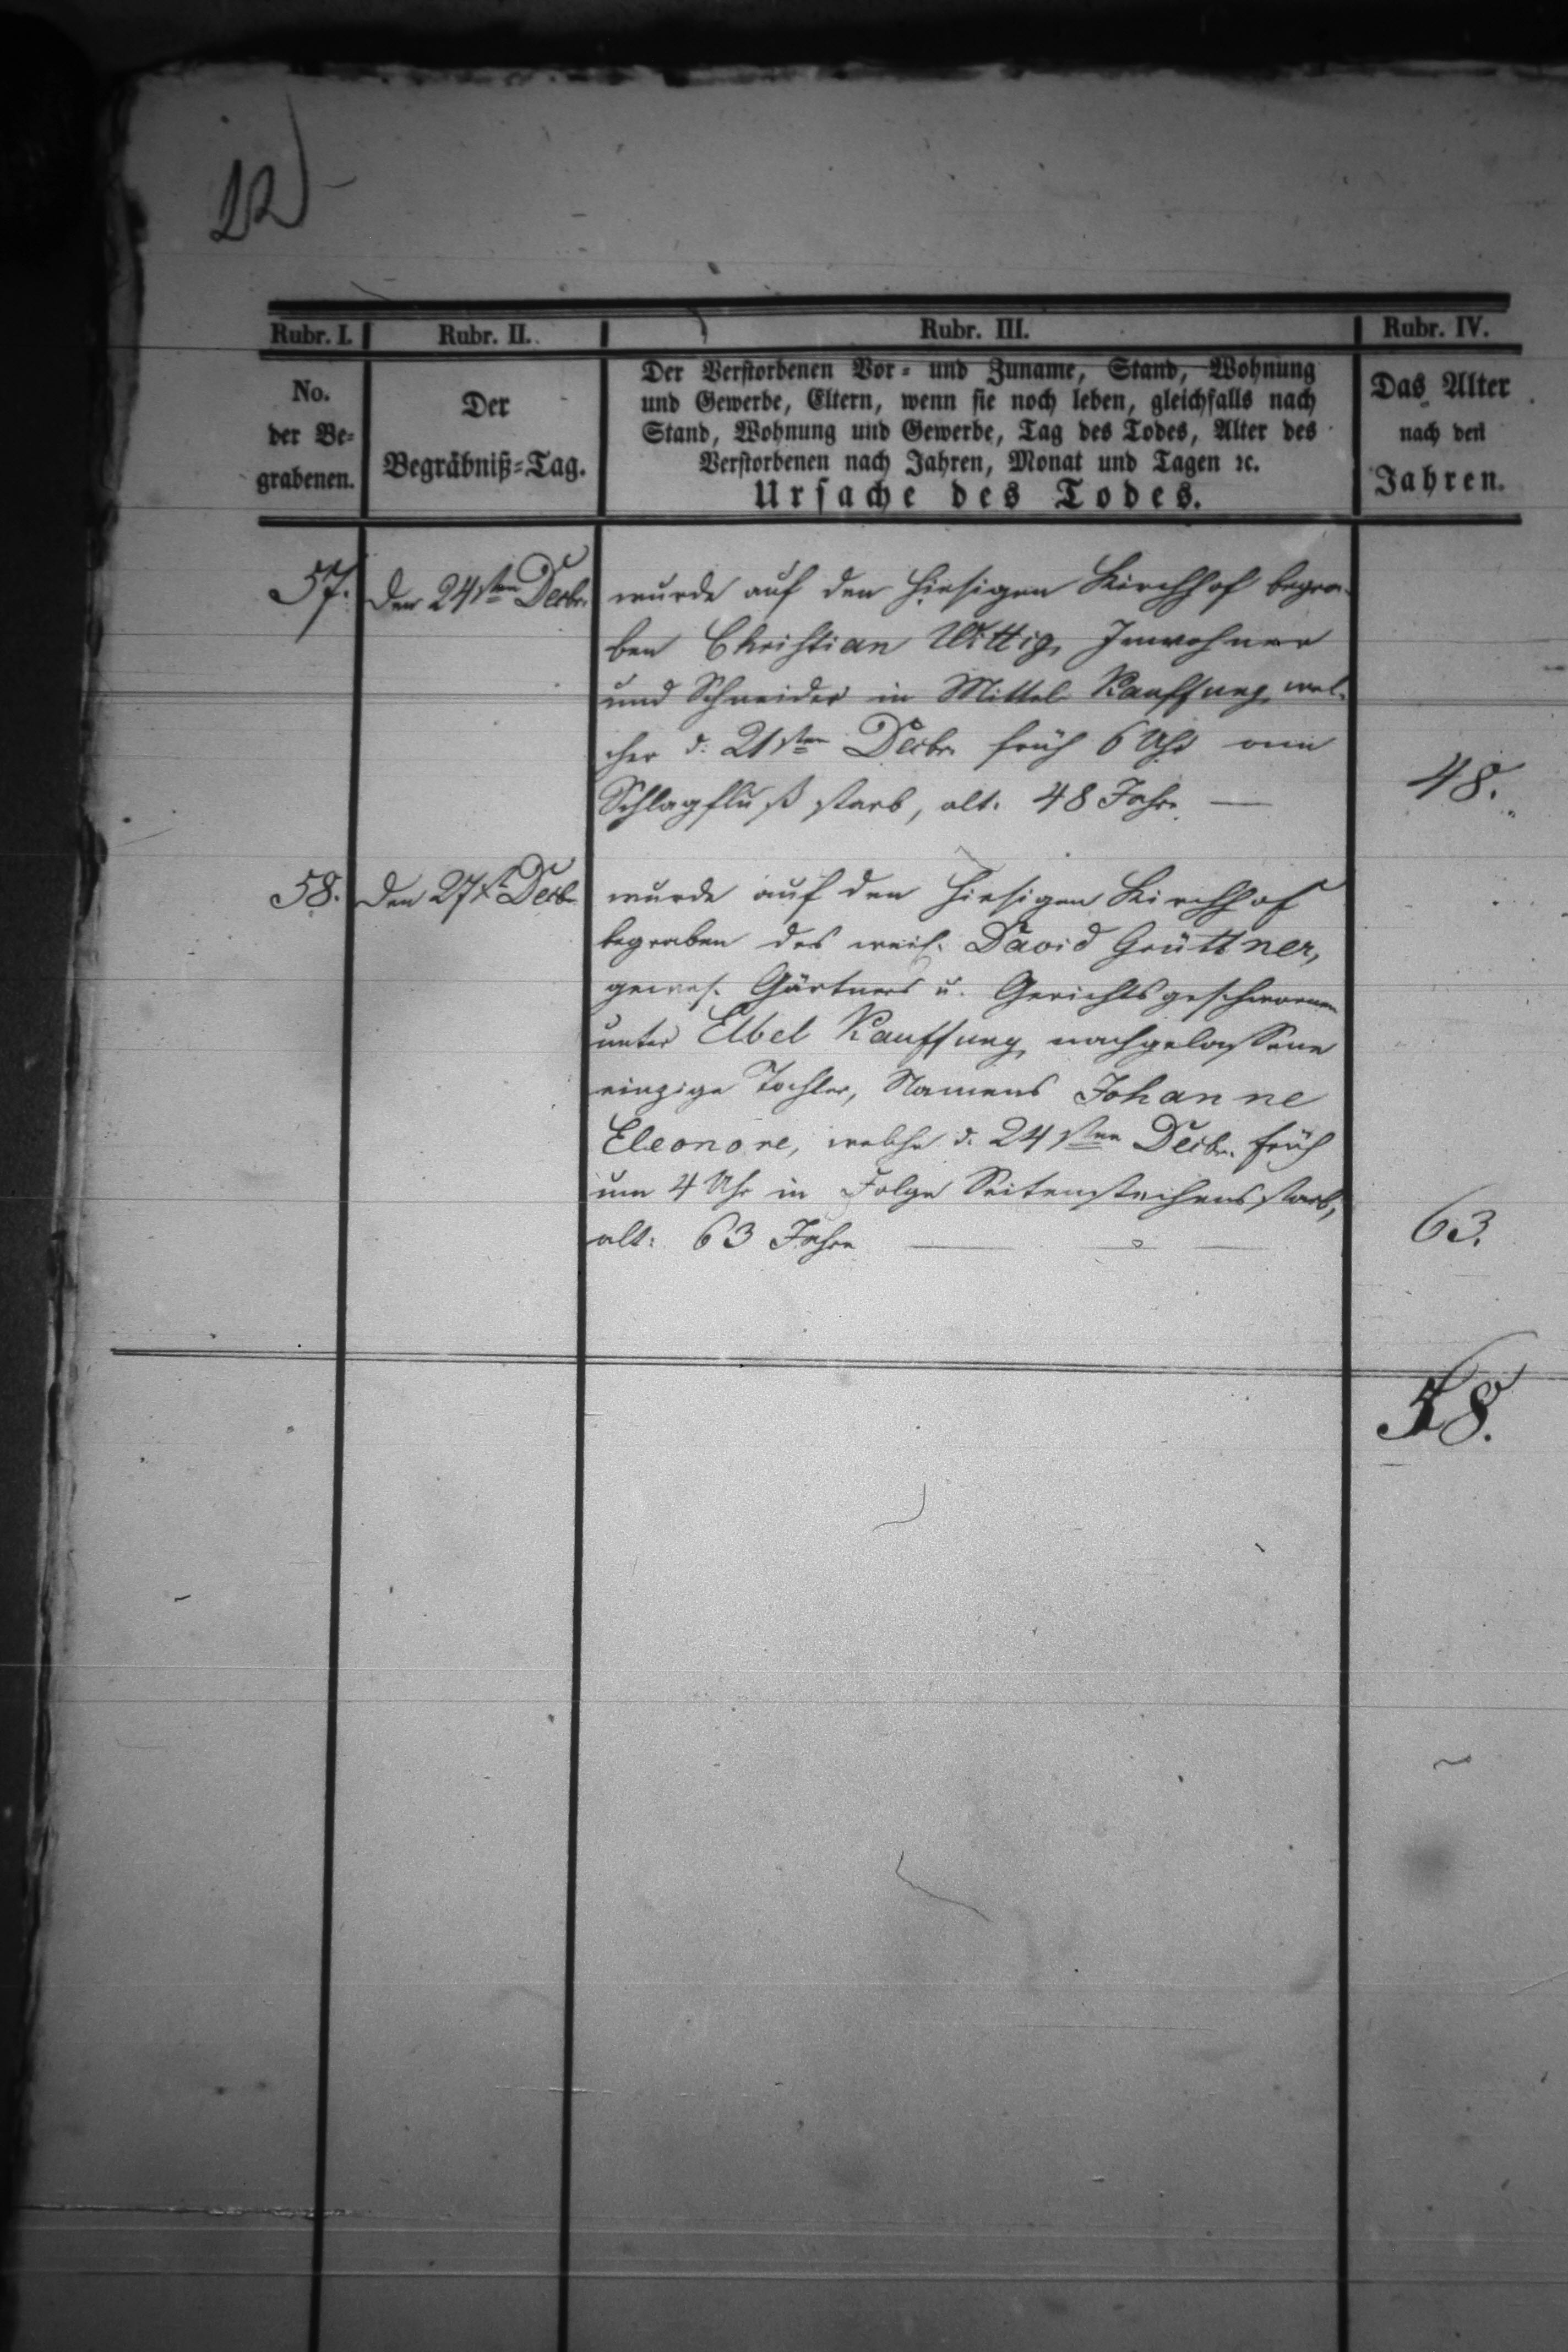 12)
Rubr. I. Rubr. II. Rubr. III. Rubr. IV.
No.
der Be-
grabenen.
Der
Begräbniß-Tag.
Der Verstorbenen Vor- und Zuname, Stand, Wohnung
und Gewerbe, Eltern, wenn sie noch leben, gleichfalls nach
Stand, Wohnung und Gewerbe, Tag des Todes, Alter des
Verstorbenen nach Jahren, Monat und Tagen ꝛc.
Ursache des Todes.
Das Alter
nach den
Jahren.
57. Den 24sten Decbr. wurde auf den hiesigen Kirchhof begra-
ben Christian Wittig, Inwohner
und Schneider in Mittel Kauffung, wel-
cher d. 21sten Decbr. früh 6 Uhr am
Schlagfluß starb, alt: 48 Jahr. — 48.
58. Den 27st. Decbr. wurde auf den hiesigen Kirchhof
begraben des weil. David Grüttner,
gewes. Gärtners u. Gerichtsgeschwornen
unter Elbel Kauffung nachgelassene
einzige Tochter, Namens Johanne
Eleonore, welche d. 24sten Decbr. früh
um 4 Uhr in Folge Seitenstechens starb,
alt: 63 Jahre 63.
58.